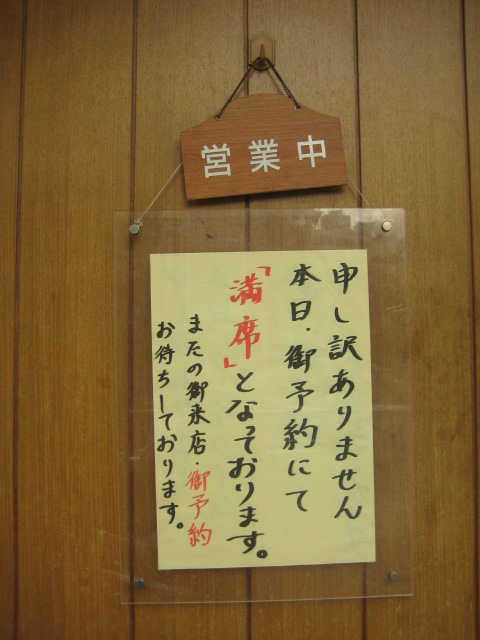 営業中
申し訳ありません
本日・御予約にて
「満席」となっております。
またの御来店・御予約
お待ちしております。